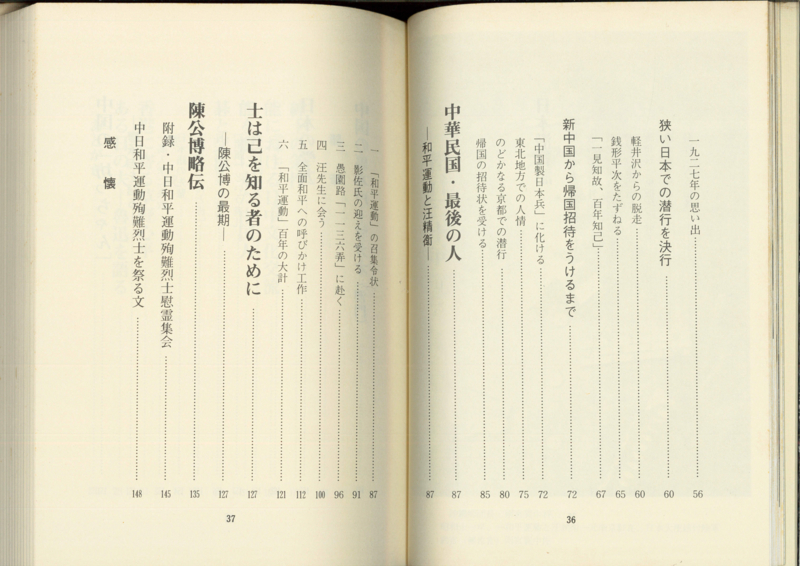 一九二七年の思い出 56
狭い日本での潜行を決行 60
軽井沢からの脱走 60
銭形平次をたずねる 65
「一見知故、百年知己」 67
新中国から帰国招待をうけるまで 72
「中国製日本兵」に化ける 72
東北地方での人情 75
のどかなる京都での潜行 80
帰国の招待状を受ける 85
中華民国・最後の人 87
―和平運動と汪精衛― 87
36
一 「和平運動」の召集令状 87
二 影佐氏の迎えを受ける 91
三 愚園路「一一三六弄」に赴く 96
四 汪先生に会う 100
五 全面和平への呼びかけ工作 112
六 「和平運動」百年の大計 121
士は己を知る者のために 127
―陳公博の最期― 127
陳公博略伝 135
附録・中日和平運動殉難烈士慰霊集会 145
中日和平運動殉難烈士を祭る文 148
感懐
37